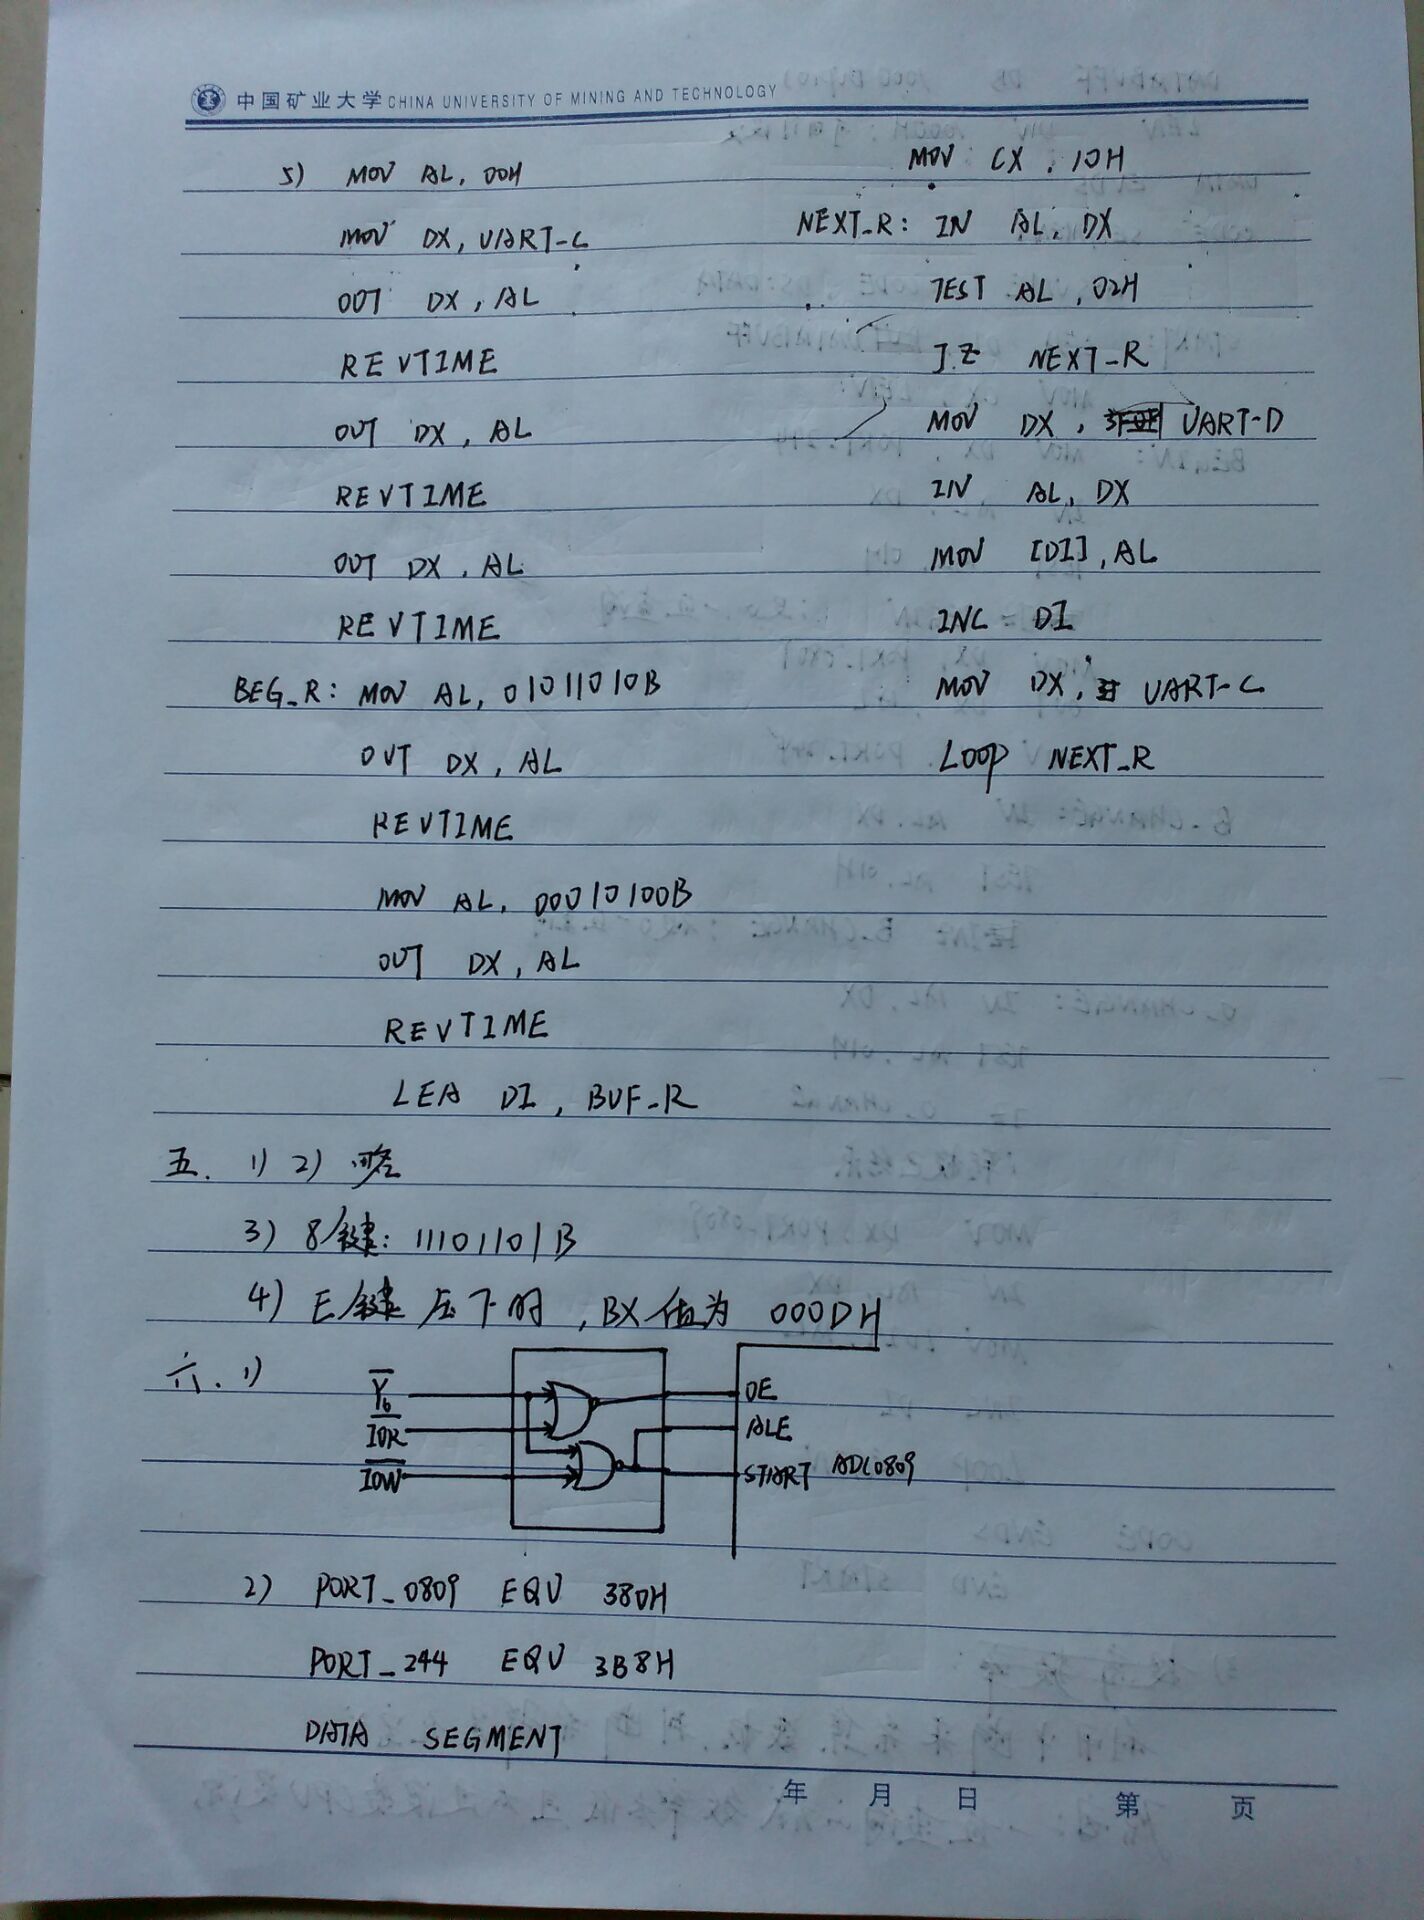 中国矿业大学 CHINA UNIVERSITY OF MINING AND TECHNOLOGY
5) MOV AL, 00H
MOV DX, UART-C
OUT DX, AL
REVTIME
OUT DX, AL
REVTIME
OUT DX, AL
REVTIME
BEG_R: MOV AL, 01011010B
OUT DX, AL
REVTIME
MOV AL, 00010100B
OUT DX, AL
REVTIME
LEA DI, BUF_R
MOV CX, 10H
NEXT_R: IN AL, DX
TEST AL, 02H
JZ NEXT_R
MOV DX, UART-D
IN AL, DX
MOV [DI], AL
INC DI
MOV DX, UART-C
LOOP NEXT_R
五. 1) 2) 略
3) 8键: 11101101B
4) E键压下时, BX值为 000DH
六. 1)
Y6
IOR
IOW
OE
ALE
START ADC0809
2) PORT_0809 EQU 380H
PORT_244 EQU 3B8H
DATA SEGMENT
年 月 日 第 页